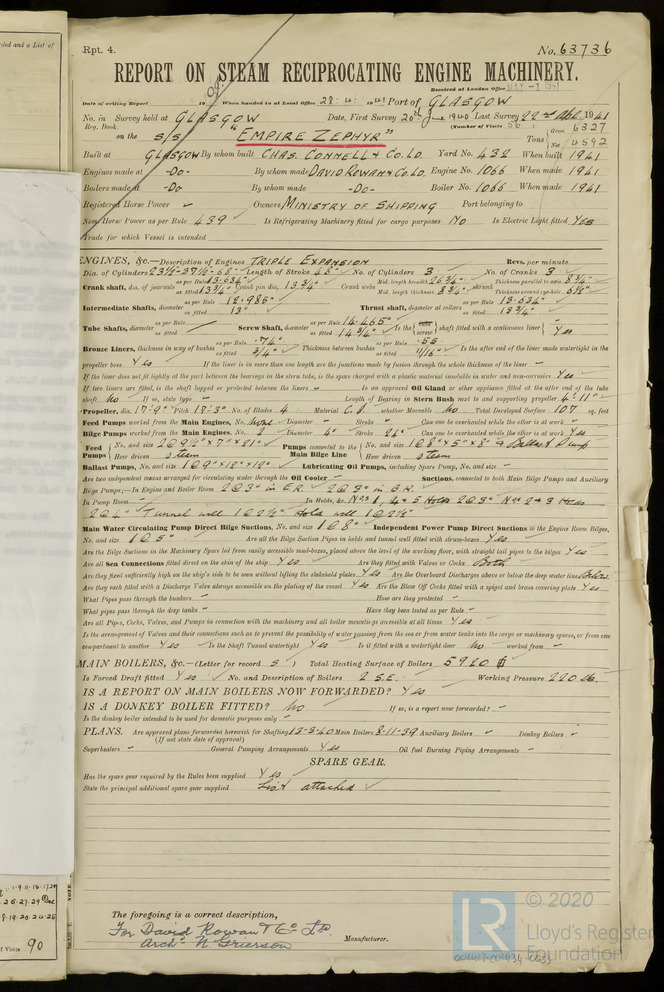 Rpt. 4.
No. 63736
REPORT ON STEAM RECIPROCATING ENGINE MACHINERY.
Received at London Office MAY -7 1941
Date of writing Report 19 When handed in at Local Office 28.4. 1941 Port of GLASGOW
No. in Survey held at GLASGOW Date, First Survey 20th June 1940 Last Survey 22nd Apl. 1941
Reg. Book. (Number of Visits 56)
on the S/S "EMPIRE ZEPHYR" Tons Gross 6327 Net 4592
Built at GLASGOW By whom built CHAS. CONNELL & CO. LD. Yard No. 432 When built 1941
Engines made at -Do- By whom made DAVID ROWAN & CO. LD. Engine No. 1066 When made 1941
Boilers made at -Do- By whom made -Do- Boiler No. 1066 When made 1941
Registered Horse Power - Owners MINISTRY OF SHIPPING Port belonging to
Nom. Horse Power as per Rule 439 Is Refrigerating Machinery fitted for cargo purposes NO Is Electric Light fitted YES
Trade for which Vessel is intended
ENGINES, &c.—Description of Engines TRIPLE EXPANSION Revs. per minute
Dia. of Cylinders 23½"-37½"-68" Length of Stroke 48" No. of Cylinders 3 No. of Cranks 3
Crank shaft, dia. of journals as per Rule 13.634" as fitted 13¾" Crank pin dia. 13¾" Crank webs Mid. length breadth 26¾" Mid. length thickness 8¾" shrunk Thickness parallel to axis 8¾" Thickness around eye-hole 6½"
Intermediate Shafts, diameter as per Rule 12.985" as fitted 13" Thrust shaft, diameter at collars as per Rule 13.634" as fitted 13¾"
Tube Shafts, diameter as per Rule as fitted Screw Shaft, diameter as per Rule 14.465" as fitted 14¾" Is the screw shaft fitted with a continuous liner Yes
Bronze Liners, thickness in way of bushes as per Rule .74" as fitted ¾" Thickness between bushes as per Rule .55 as fitted 11/16" Is the after end of the liner made watertight in the
propeller boss Yes If the liner is in more than one length are the junctions made by fusion through the whole thickness of the liner -
If the liner does not fit tightly at the part between the bearings in the stern tube, is the space charged with a plastic material insoluble in water and non-corrosive Yes
If two liners are fitted, is the shaft lapped or protected between the liners - Is an approved Oil Gland or other appliance fitted at the after end of the tube
shaft No If so, state type - Length of Bearing in Stern Bush next to and supporting propeller 4'-11"
Propeller, dia. 17'-9" Pitch 17'-3" No. of Blades 4 Material C.I. whether Moveable No Total Developed Surface 107 sq. feet
Feed Pumps worked from the Main Engines, No. None Diameter - Stroke - Can one be overhauled while the other is at work -
Bilge Pumps worked from the Main Engines, No. 2 Diameter 4" Stroke 26" Can one be overhauled while the other is at work Yes
Feed Pumps No. and size 2@9½"x7"x21" How driven steam Pumps connected to the Main Bilge Line No. and size 1@8"x5"x8" & Ballast Pump How driven steam
Ballast Pumps, No. and size 1@9"x12"x12" Lubricating Oil Pumps, including Spare Pump, No. and size -
Are two independent means arranged for circulating water through the Oil Cooler - Suctions, connected to both Main Bilge Pumps and Auxiliary
Bilge Pumps;—In Engine and Boiler Room 2@3" in E.R. 2@3" in B.R.
In Pump Room - In Holds, &c. Nos 1, 4 & 5 Holds 2@3" Nos 2 & 3 Holds
2@4" Tunnel well 1@2½" Hold well 1@2½"
Main Water Circulating Pump Direct Bilge Suctions, No. and size 1@8" Independent Power Pump Direct Suctions to the Engine Room Bilges,
No. and size 1@5" Are all the Bilge Suction Pipes in holds and tunnel well fitted with strum-boxes Yes
Are the Bilge Suctions in the Machinery Space led from easily accessible mud-boxes, placed above the level of the working floor, with straight tail pipes to the bilges Yes
Are all Sea Connections fitted direct on the skin of the ship Yes Are they fitted with Valves or Cocks Both
Are they fixed sufficiently high on the ship's side to be seen without lifting the stokehold plates Yes Are the Overboard Discharges above or below the deep water line Below
Are they each fitted with a Discharge Valve always accessible on the plating of the vessel Yes Are the Blow Off Cocks fitted with a spigot and brass covering plate Yes
What Pipes pass through the bunkers - How are they protected -
What pipes pass through the deep tanks - Have they been tested as per Rule -
Are all Pipes, Cocks, Valves, and Pumps in connection with the machinery and all boiler mountings accessible at all times Yes
Is the arrangement of Valves and their connections such as to prevent the possibility of water passing from the sea or from water tanks into the cargo or machinery spaces, or from one
compartment to another Yes Is the Shaft Tunnel watertight Yes Is it fitted with a watertight door No worked from -
MAIN BOILERS, &c.—(Letter for record S) Total Heating Surface of Boilers 5920
Is Forced Draft fitted Yes No. and Description of Boilers 2 S.E. Working Pressure 220 lb.
IS A REPORT ON MAIN BOILERS NOW FORWARDED? Yes
IS A DONKEY BOILER FITTED? No If so, is a report now forwarded? -
Is the donkey boiler intended to be used for domestic purposes only -
PLANS. Are approved plans forwarded herewith for Shafting 12-3-40 Main Boilers 8-11-39 Auxiliary Boilers - Donkey Boilers -
(If not state date of approval)
Superheaters - General Pumping Arrangements Yes Oil fuel Burning Piping Arrangements -
SPARE GEAR.
Has the spare gear required by the Rules been supplied Yes
State the principal additional spare gear supplied List attached
The foregoing is a correct description,
For David Rowan & Co Ld.
Archd N Grierson Manufacturer.
of Visits 90
© 2020
LR Lloyd's Register
Foundation